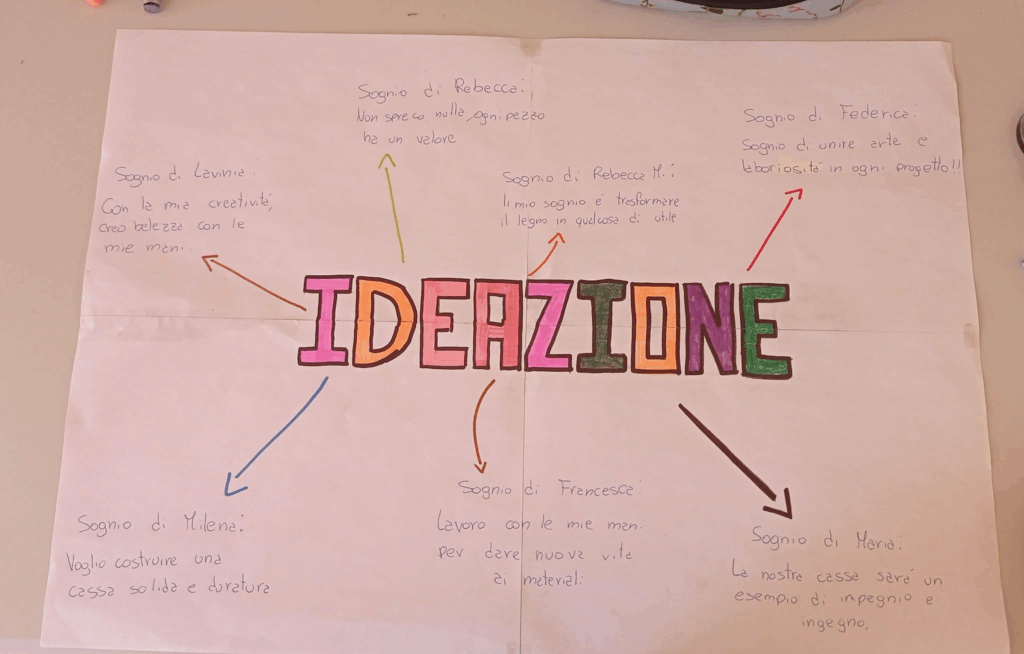 Sognio di Rebecca:
Non spreco nulla, ogni pezzo
ha un valore
Sognio di Federica:
Sogno di unire arte e
laboriositá in ogni progetto!!
Sognio di Lavinia:
Con la mia creativitá,
creo belezza con le
mie mani.
Sognio di Rebecca M.:
Il mio sognio é trasformare
il legno in qualcosa di utile
IDEAZIONE
Sognio di Milena:
Voglio costruire una
cassa solida e duratura
Sognio di Francesca:
Lavoro con le mie mani
per dare nuova vita
ai materiali
Sognio di Maria:
La nostra cassa sará un
esempio di inpegnio e
ingegno.